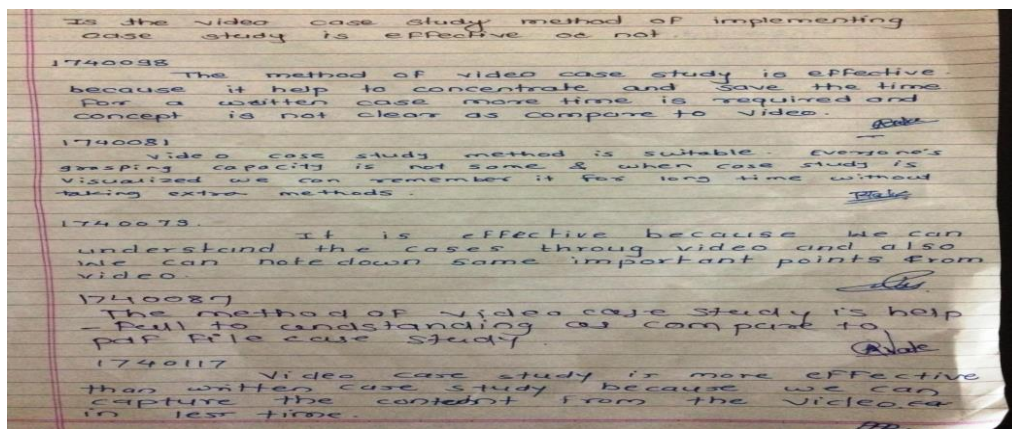 Is the video case study method of implementing
case study is effective or not.
1740098
The method of video case study is effective.
because it help to concentrate and save the time
For a written case more time is required and
concept is not clear as compare to video.
1740081
video case study method is suitable. Everyone's
grasping capacity is not same & when case study is
visualized we can remember it for long time without
taking extra methods.
1740079.
It is effective because we can
understand the cases throug video and also
we can note down some important points from
video.
1740087
The method of video case study is help
- full to undstanding as compare to
pdf file case study.
1740117
Video case study is more effective
than written case study because we can
capture the from the video.
in less time.